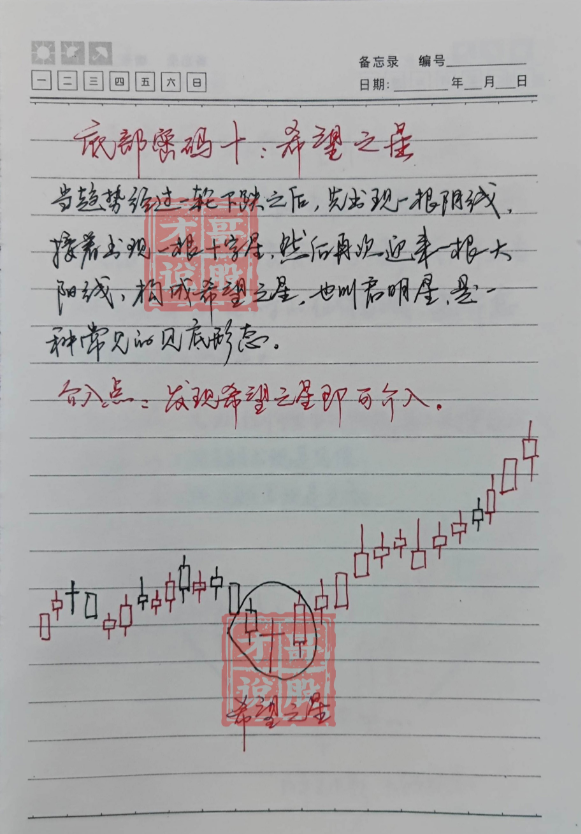 备忘录 编号
一 二 三 四 五 六 日
日期: 年 月 日
底部密码十:希望之星
当趋势经过一轮下跌之后,先出现一根阴线,
接着出现一根十字星,然后再次迎来一根大
阳线,构成希望之星,也叫启明星,是一
种常见的见底形态。
介入点:发现希望之星即可介入。
才哥
说股
才哥
说股
希望之星